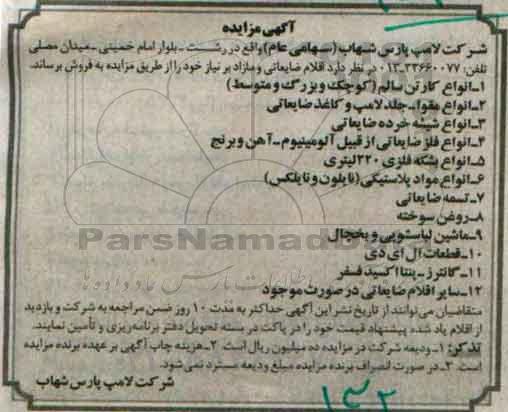 آگهی مزایده
شرکت لامپ پارس شهاب (سهامی عام) واقع در رشت ـ بلوار امام خمینی ـ میدان مصلی
تلفن: ۳۳۶۶۰۰۷۷-۰۱۳ در نظر دارد اقلام ضایعاتی و مازاد بر نیاز خود را از طریق مزایده به فروش برساند.
۱ـ انواع کارتن سالم (کوچک و بزرگ و متوسط)
۲ـ انواع مقوا ـ جلد لامپ و کاغذ ضایعاتی
۳ـ انواع شیشه خرده ضایعاتی
۴ـ انواع فلز ضایعاتی از قبیل آلومینیوم ـ آهن و برنج
۵ـ انواع بشکه فلزی ۲۲۰ لیتری
۶ـ انواع مواد پلاستیکی (نایلون و نایلکس)
۷ـ تسمه ضایعاتی
۸ـ روغن سوخته
۹ـ ماشین لباسشویی و یخچال
ParsNamadData
۱۰ـ قطعات ال ای دی
۱۱ـ گانترز ـ پنتا اکسید فسفر
۱۲ـ سایر اقلام ضایعاتی در صورت موجود
متقاضیان می‌توانند از تاریخ نشر این آگهی حداکثر به مدت ۱۰ روز ضمن مراجعه به شرکت و بازدید
از اقلام یاد شده پیشنهاد قیمت خود را در پاکت در بسته تحویل دفتر برنامه‌ریزی و تأمین نمایند.
تذکر: ۱ـ ودیعه شرکت در مزایده ده میلیون ریال است. ۲ـ هزینه چاپ آگهی بر عهده برنده مزایده
است. ۳ـ در صورت انصراف برنده مزایده مبلغ ودیعه مسترد نمی‌شود.
شرکت لامپ پارس شهاب
۱۳۲